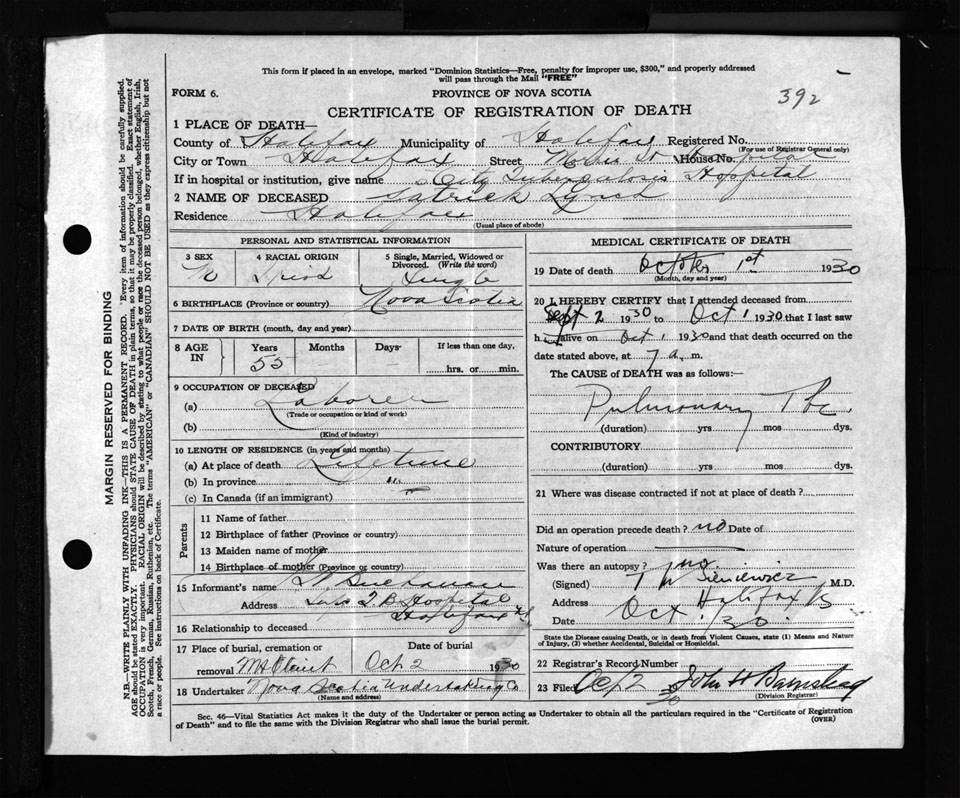 This form if placed in an envelope, marked "Dominion Statistics—Free, penalty for improper use, $300," and properly addressed
will pass through the Mail "FREE"
392
FORM 6.
PROVINCE OF NOVA SCOTIA
CERTIFICATE OF REGISTRATION OF DEATH
1 PLACE OF DEATH—
County of Halifax Municipality of Halifax Registered No.
(For use of Registrar General only)
City or Town Halifax Street House No. Hospital
If in hospital or institution, give name City Tuberculosis Hospital
2 NAME OF DECEASED Patrick Lynch
Residence Halifax
(Usual place of abode)
PERSONAL AND STATISTICAL INFORMATION
3 SEX
M
4 RACIAL ORIGIN
Irish
5 Single, Married, Widowed or
Divorced. (Write the word)
Single
6 BIRTHPLACE (Province or country) Nova Scotia
7 DATE OF BIRTH (month, day and year)
8 AGE IN
Years Months Days If less than one day,
55 hrs. or min.
9 OCCUPATION OF DECEASED
(a) Laborer
(Trade or occupation or kind of work)
(b)
(Kind of industry)
10 LENGTH OF RESIDENCE (in years and months)
(a) At place of death Lifetime
(b) In province "
(c) In Canada (if an immigrant)
Parents
11 Name of father
12 Birthplace of father (Province or country)
13 Maiden name of mother
14 Birthplace of mother (Province or country)
15 Informant's name Buchanan
Address Supt T.B. Hospital
Halifax N.S.
16 Relationship to deceased
17 Place of burial, cremation or
removal Mt Olivet
Date of burial
Oct 2 1930
18 Undertaker Nova Scotia Undertaking Co
(Name and address)
MEDICAL CERTIFICATE OF DEATH
19 Date of death October 1st 1930
(Month, day and year)
20 I HEREBY CERTIFY that I attended deceased from
Sept 2 1930 to Oct 1 1930 that I last saw
h im alive on Oct 1 1930 and that death occurred on the
date stated above, at 7 a. m.
The CAUSE of DEATH was as follows:—
Pulmonary Tbc.
(duration) yrs mos dys.
CONTRIBUTORY
(duration) yrs mos dys.
21 Where was disease contracted if not at place of death?
Did an operation precede death? no Date of
Nature of operation
Was there an autopsy? no.
(Signed) T M Sieniewicz M.D.
Address Halifax NS
Date Oct 1/30.
State the Disease causing Death, or in death from Violent Causes, state (1) Means and Nature
of Injury, (2) whether Accidental, Suicidal or Homicidal.
22 Registrar's Record Number
23 Filed Oct 2 30 John H Barnstead
(Division Registrar)
Sec. 46—Vital Statistics Act makes it the duty of the Undertaker or person acting as Undertaker to obtain all the particulars required in the "Certificate of Registration
of Death" and to file the same with the Division Registrar who shall issue the burial permit.
(OVER)
MARGIN RESERVED FOR BINDING
N.B.—WRITE PLAINLY WITH UNFADING INK—THIS IS A PERMANENT RECORD. Every item of information should be carefully supplied.
AGE should be stated EXACTLY. PHYSICIANS should STATE CAUSE OF DEATH in plain terms, so that it may be properly classified. Exact statement of
OCCUPATION is very important. RACIAL ORIGIN will be described by stating to what people or race the deceased person belonged, whether English, Irish,
Scotch, French, German, Russian, Ruthenian, etc. The terms "AMERICAN" or "CANADIAN" SHOULD NOT BE USED as they express citizenship but not
a race or people. See instructions on back of Certificate.